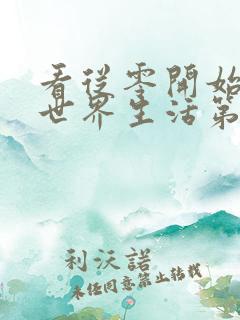 看從零開始
世界生活第
利沃諾
未經同意禁止轉載